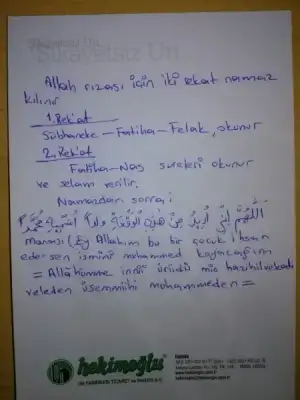 Şikayetsiz Un
Allah rızası için iki rekat namaz
kılınır
1. Rek'at
Sübhaneke - Fatiha - Felak, okunur
2. Rek'at
Fatiha - Nas sureleri okunur
ve selam verilir.
Namazdan sonra:
اَللّٰهُمَّ اِنِّي اُرِيدُ مِنْ هٰذِهِ الْوَقْعَةِ وَلَداً اُسَمِّيهِ مُحَمَّداً
manası (Ey Allahım bu bir çocuk ihsan
edersen ismini mohammed koyacağım
= Allâhümme innî ürîdü min hazihil vak'ati
veleden üsemmihi mohammeden =
hekimoğlu
UN FABRİKASI TİCARET ve SANAYİ A.Ş.